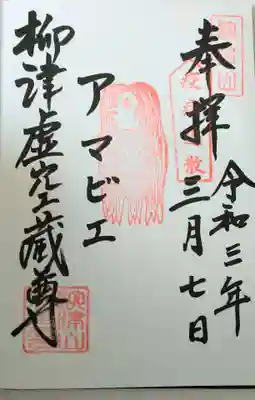 奉拝
令和三年
三月七日
アマビエ
柳津虚空蔵尊